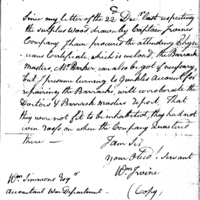 Since my letter of the 22d Decr last respecting
the surplus wood drawn by Captain Greenes
Company I have procured the attending
Certificate, which is inclosed, the Barrack
Master, Mr. Barker can also be got if necessary,
but I presume turning to Account for
repairing the Barracks, will corroborate the
Doctors & Barrack masters report. That
they were not fit to be inhabited, they had not
even roofs on when the Company quartered
there —
I am Sir,
your Obed. Servant
Wm Irvine
Wm. Simmons Esqr
Accountant War Department.
(Copy)